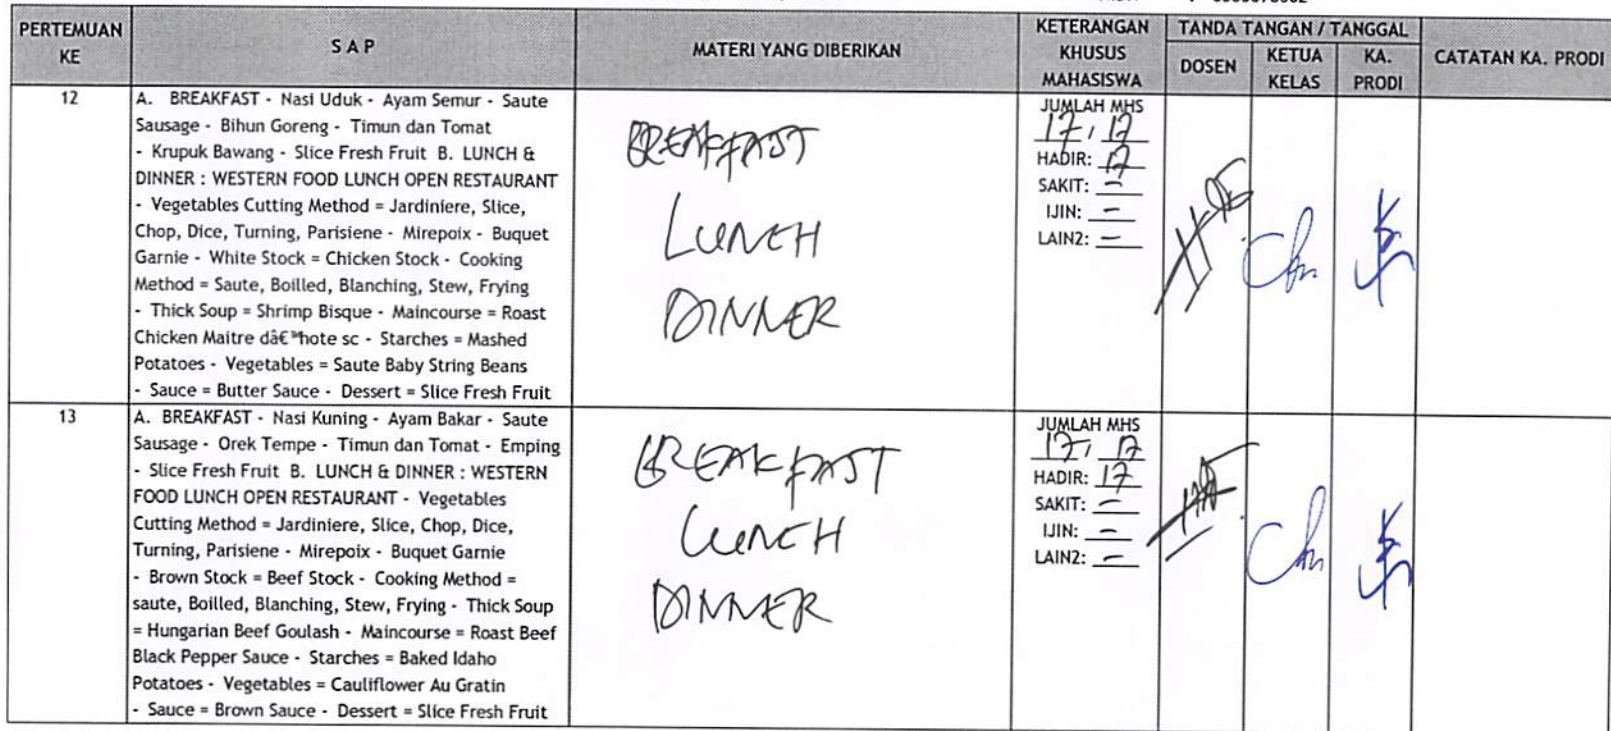 PERTEMUAN KE
S A P
MATERI YANG DIBERIKAN
KETERANGAN KHUSUS MAHASISWA
TANDA TANGAN / TANGGAL
DOSEN
KETUA KELAS
KA. PRODI
CATATAN KA. PRODI
12
A. BREAKFAST - Nasi Uduk - Ayam Semur - Saute
Sausage - Bihun Goreng - Timun dan Tomat
- Krupuk Bawang - Slice Fresh Fruit B. LUNCH &
DINNER : WESTERN FOOD LUNCH OPEN RESTAURANT
- Vegetables Cutting Method = Jardiniere, Slice,
Chop, Dice, Turning, Parisiene - Mirepoix - Buquet
Garnie - White Stock = Chicken Stock - Cooking
Method = Saute, Boilled, Blanching, Stew, Frying
- Thick Soup = Shrimp Bisque - Maincourse = Roast
Chicken Maitre dâ€™hote sc - Starches = Mashed
Potatoes - Vegetables = Saute Baby String Beans
- Sauce = Butter Sauce - Dessert = Slice Fresh Fruit
BREAKFAST
LUNCH
DINNER
JUMLAH MHS
17, 17
HADIR: 17
SAKIT: -
IJIN: -
LAIN2: -
13
A. BREAKFAST - Nasi Kuning - Ayam Bakar - Saute
Sausage - Orek Tempe - Timun dan Tomat - Emping
- Slice Fresh Fruit B. LUNCH & DINNER : WESTERN
FOOD LUNCH OPEN RESTAURANT - Vegetables
Cutting Method = Jardiniere, Slice, Chop, Dice,
Turning, Parisiene - Mirepoix - Buquet Garnie
- Brown Stock = Beef Stock - Cooking Method =
saute, Boilled, Blanching, Stew, Frying - Thick Soup
= Hungarian Beef Goulash - Maincourse = Roast Beef
Black Pepper Sauce - Starches = Baked Idaho
Potatoes - Vegetables = Cauliflower Au Gratin
- Sauce = Brown Sauce - Dessert = Slice Fresh Fruit
BREAKFAST
LUNCH
DINNER
JUMLAH MHS
17, 17
HADIR: 17
SAKIT: -
IJIN: -
LAIN2: -